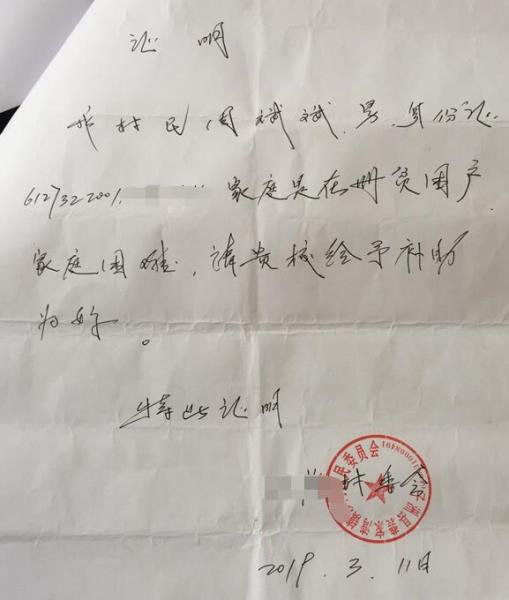 证明
我村民周斌斌，男，身份证
6127322001 家庭是在册贫困户
家庭困难，请贵校给予补助
为好。
特此证明
村委会
2019.3.11日